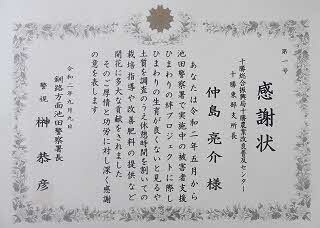 第一号
感謝状
十勝総合振興局十勝農業改良普及センター
十勝東部支所長
仲島亮介様
あなたは令和二年五月から
池田警察署で実施中の被害者支援
ひまわりの絆プロジェクトに際し
ひまわりの生育が良くないと見るや
土質を調査のうえ休憩時間を割いての
栽培指導や改善肥料の提供など
開花に多大な貢献をされました
そのご厚情と功労に対し深く感謝
の意を表します
令和二年九月九日
釧路方面池田警察署長
警視 榊恭彦